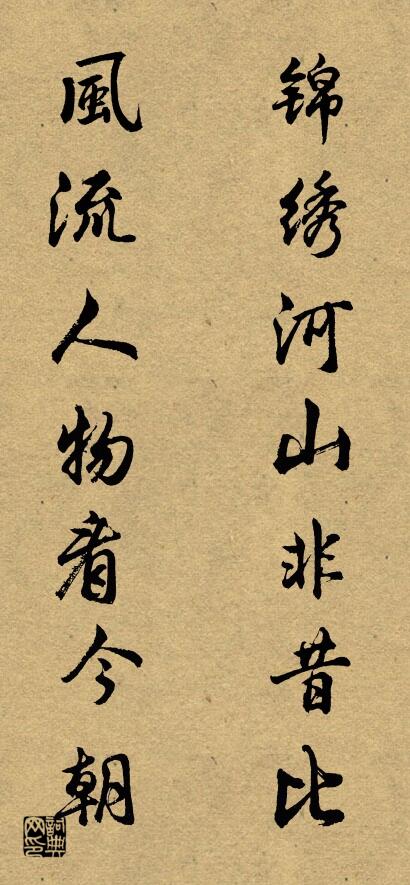 锦绣河山非昔比
風流人物看今朝
詞典网印